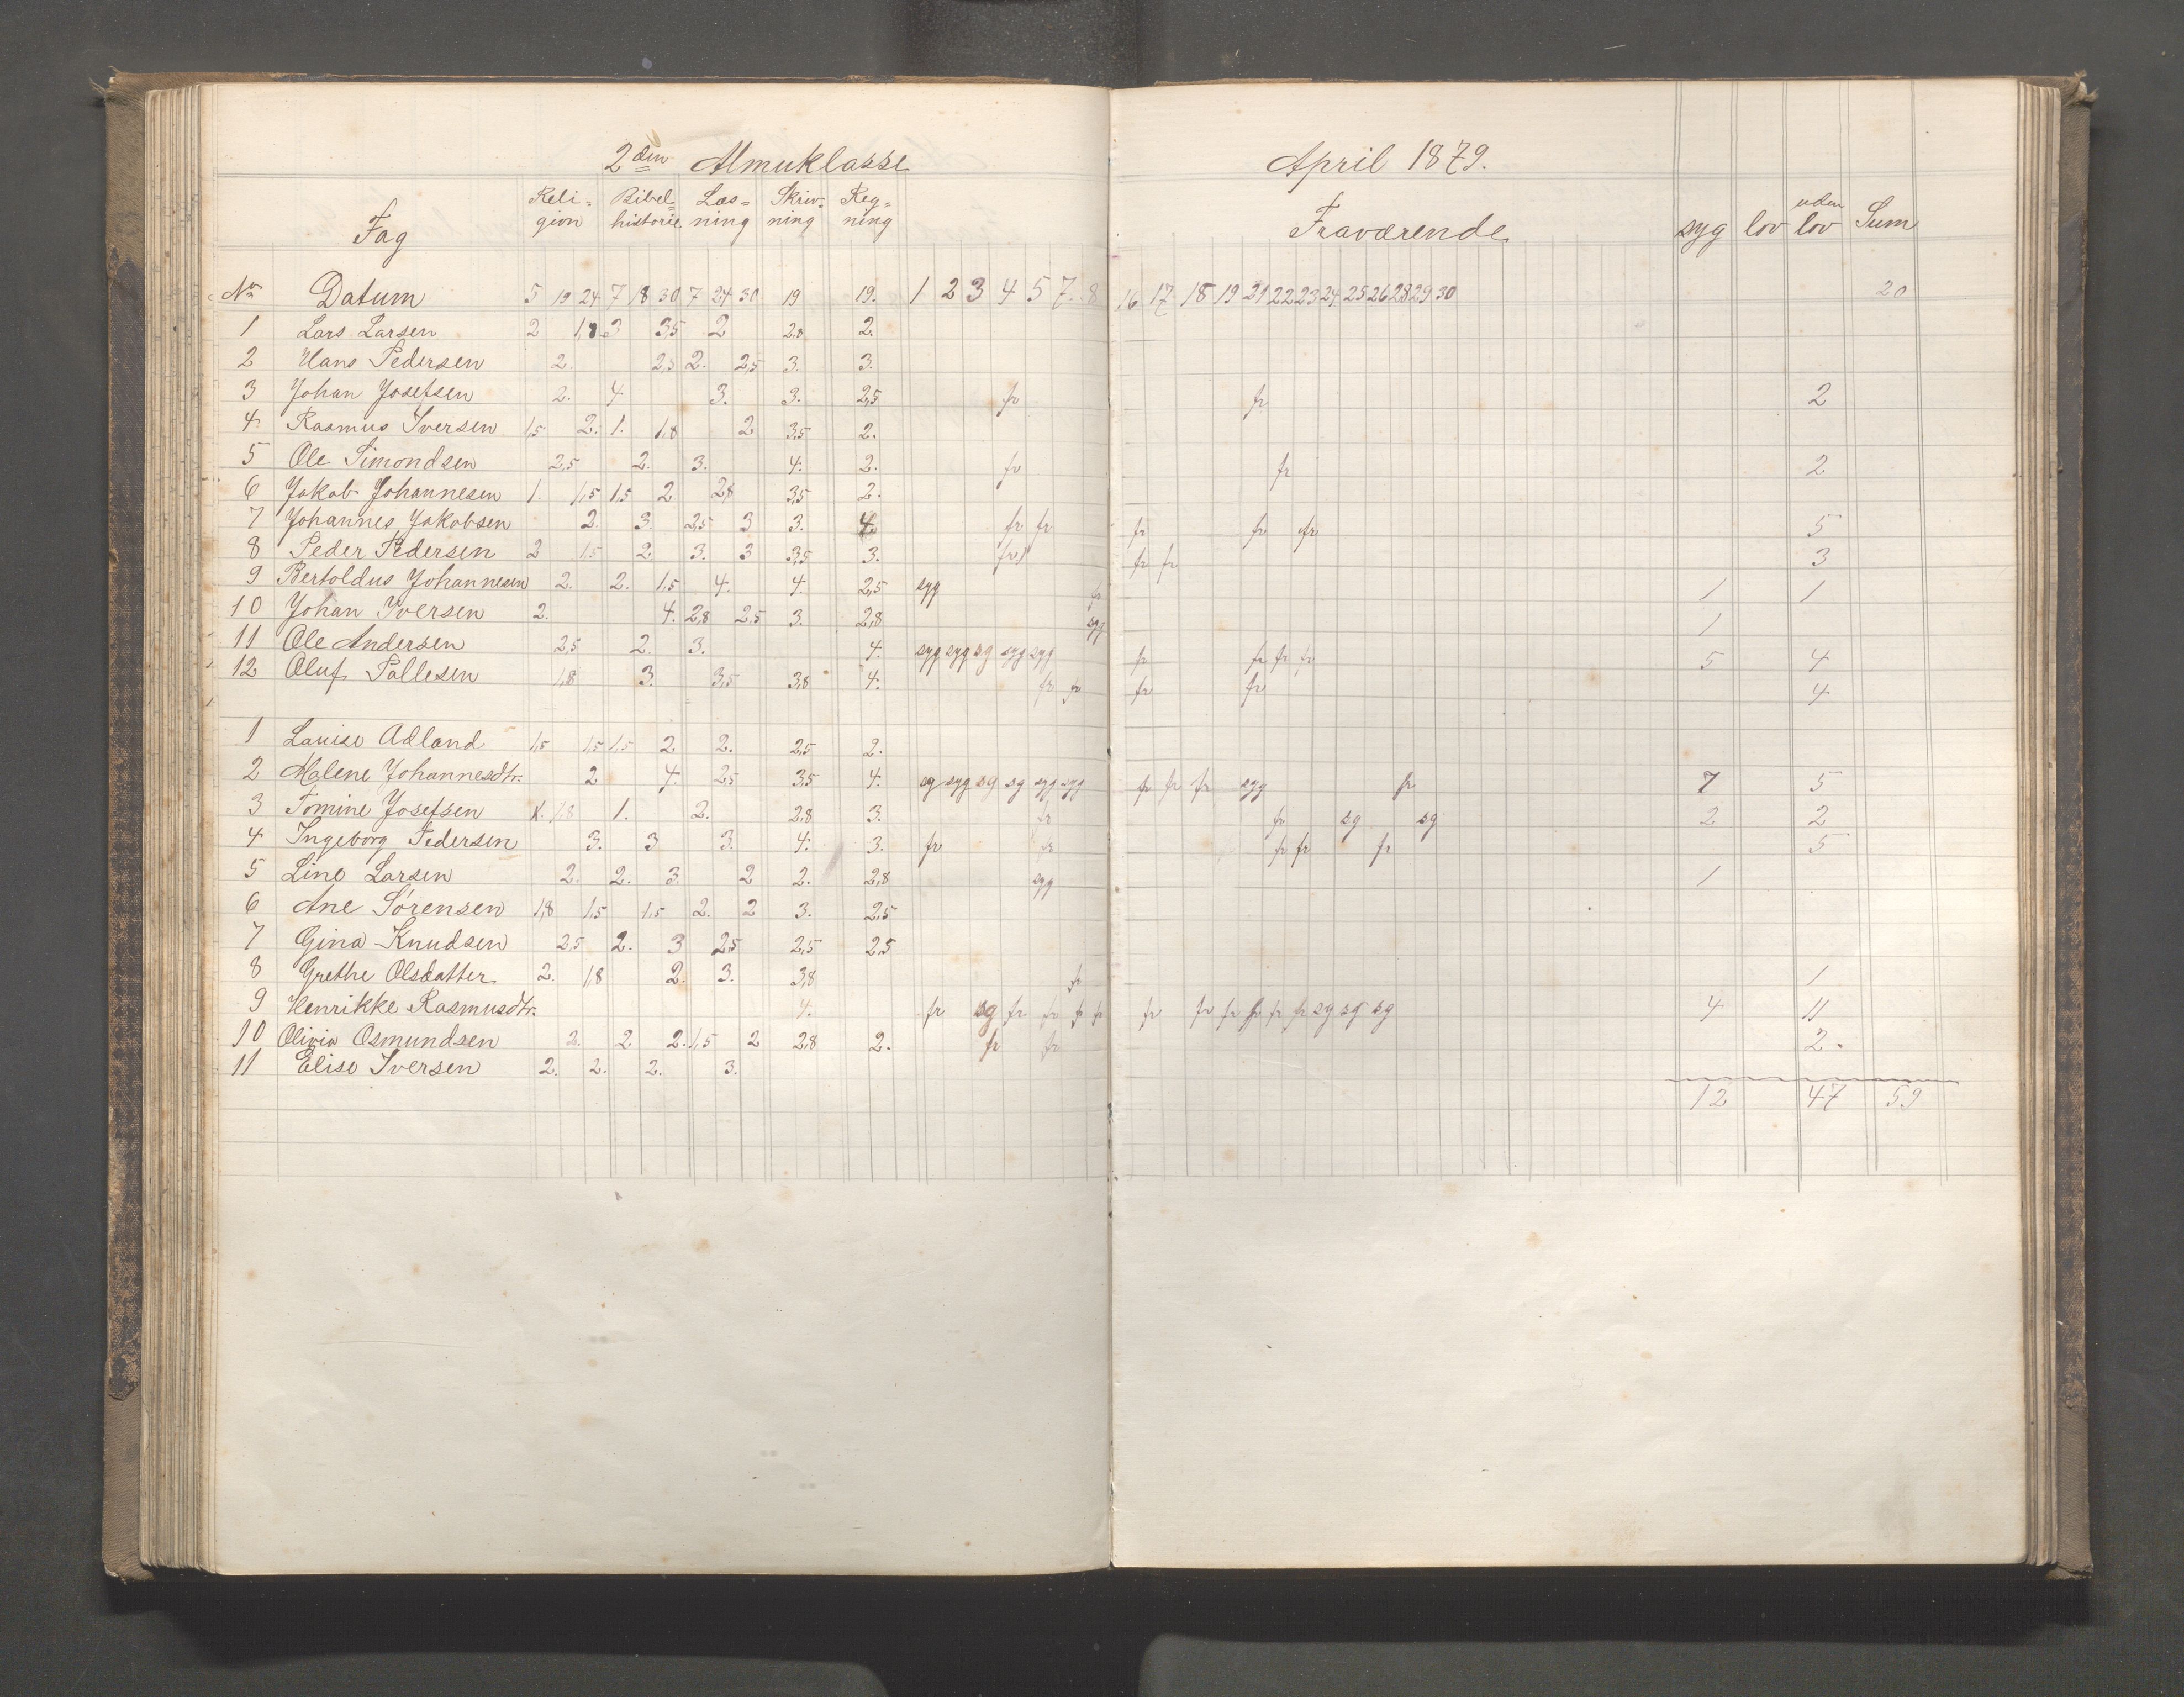 2den Almuklasse April 1879.
Fag Reli- gion Bibel- historie Læs- ning Skriv- ning Reg- ning Fraværende syg lov uden lov Sum
No Datum 5 19 24 7 18 30 7 24 30 19 19. 1 2 3 4 5 7. 8 16 17 18 19 21 22 23 24 25 26 28 29 30 20
1 Lars Larsen 2 1,8 3 3,5 2 2,8 2.
2 Hans Pedersen 2. 2,5 2. 2,5 3. 3.
3 Johan Josefsen 2. 4. 3. 3. 2,5 fr fr 2
4 Rasmus Iversen 1,5 2. 1. 1,8 2 3,5 2.
5 Ole Simondsen 2,5 2. 3. 4. 2. fr fr 2
6 Jakob Johannesen 1. 1,5 1,5 2. 2,8 3,5 2.
7 Johannes Jakobsen 2. 3. 2,5 3 3. 4. fr fr fr fr fr 5
8 Peder Pedersen 2 1,5 2. 3. 3 3,5 3. fr fr fr 3
9 Bertoldus Johannesen 2. 2. 1,5 4. 4. 2,5 syg fr 1 1
10 Johan Iversen 2. 4. 2,8 2,5 3. 2,8 syg 1
11 Ole Andersen 2,5 2. 3. 4. syg syg sg syg syg fr fr fr fr 5 4
12 Oluf Pallesen 1,8 3. 3,5 3,8 4. fr fr fr fr 4
1 Lauise Adland 1,5 1,5 1,5 2 2. 2,5 2.
2 Malene Johannesdtr. 2 4. 2,5 3,5 4. sg syg sg sg syg syg fr fr fr syg fr 7 5
3 Tomine Josefsen 1. 1,8 1. 2. 2,8 3. fr fr sg sg 2 2
4 Ingeborg Pedersen 3. 3 3. 4. 3. fr fr fr fr fr 5
5 Line Larsen 2. 2. 3. 2 2. 2,8 syg 1
6 Ane Sørensen 1,8 1,5 1,5 2. 2 3. 2,5
7 Gina Knudsen 2,5 2. 3 2,5 2,5 2,5
8 Grethe Olsdatter 2. 1,8 2. 3. 3,8 fr 1
9 Henrikke Rasmusdtr. 4. fr sg fr fr fr fr fr fr fr fr fr fr sg sg sg 4 11
10 Olivia Osmundsen 2. 2 2. 1,5 2 2,8 2. fr fr 2.
11 Elise Iversen 2. 2. 2. 3.
12 47 59